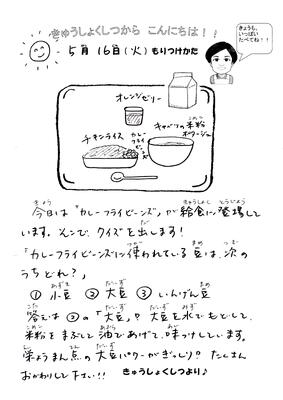 きゅうしょくしつから こんにちは！！
きょうも、
いっぱい
たべてね！！
5月 16日（火）もりつけかた
オレンジゼリー
キャベツの米粉
ポタージュ
チキンライス
カレー
フライ
ビーンズ
今日は「カレーフライビーンズ」が給食に登場して
います。そこで、クイズを出します！
「カレーフライビーンズに使われている豆は、次の
うちどれ？」
① 小豆 ② 大豆 ③ いんげん豆
答えは ② の「大豆」？大豆を水でもどして、
米粉をまぶして油であげて、味つけしています。
栄ようまん点の大豆パワーがぎっしり？たくさん
おかわりして下さい!! きゅうしょくしつより♪